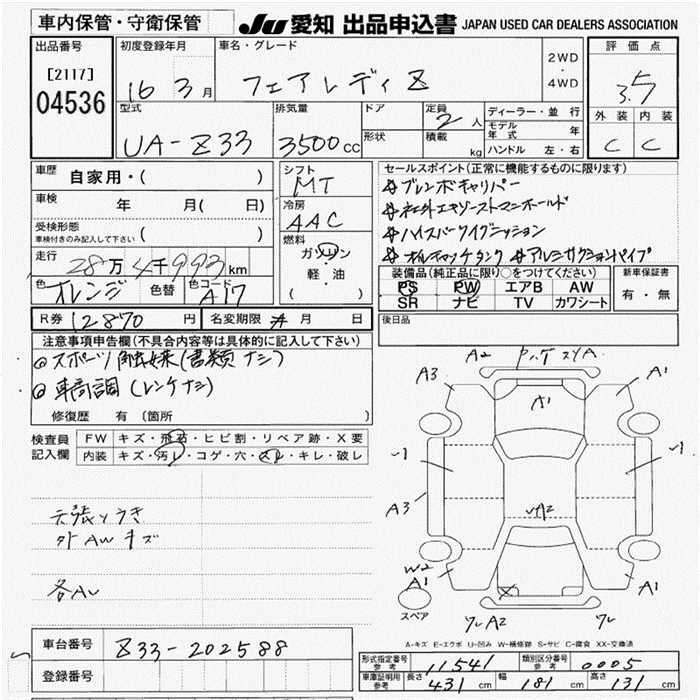 車内保管・守衛保管
JU 愛知 出品申込書 JAPAN USED CAR DEALERS ASSOCIATION
出品番号
[2117]
04536
初度登録年月
16 3月
車名・グレード
フェアレディZ
2WD
・
4WD
評価点
3.5
外装 内装
C C
型式
UA-Z33
排気量
3500cc
ドア
形状
定員
2人
積載
kg
ディーラー・並行
モデル年式 年
ハンドル 左・右
車歴
自家用・( )
車検
年 月( 日)
受検形態
車検付きのみ記入して下さい ( )
走行
28万4千993km
色
オレンジ
色替
色コード
A17
シフト
MT
冷房
AAC
燃料
ガソリン
軽・油
( )
セールスポイント(正常に機能するものに限ります)
#ブレンボキャリパー
#社外エキゾーストマニホールド
#ハイスパークイグニッション
#オイルキャッチタンク #アルミサクションパイプ
装備品(純正品に限り○をつけてください)
PS PW エアB AW
SR ナビ TV カワシート
新車保証書
有・無
R券 12870円
名変期限 月 日
後日品
注意事項申告欄(不具合内容等は具体的に記入して下さい)
車高調(レンチナシ)
修復歴 有 〔箇所 〕
検査員記入欄
FW キズ・飛石・ヒビ割・リペア跡・X要
内装 キズ・汚レ・コゲ・穴・スレ・キレ・破レ
天張ヒウキ
外AWキズ
各AU
A2
A3
A1
A1
A3
W2
A1
A1
スペア
A2
A-キズ E-エクボ U-凹み W-補修跡 S-サビ C-腐食 XX-交換済
車台番号 Z33-202588
登録番号
形式指定番号 参考 11541
類別区分番号 参考 0005
車庫証明用 参考 長さ 431cm 幅 181cm 高さ 131cm